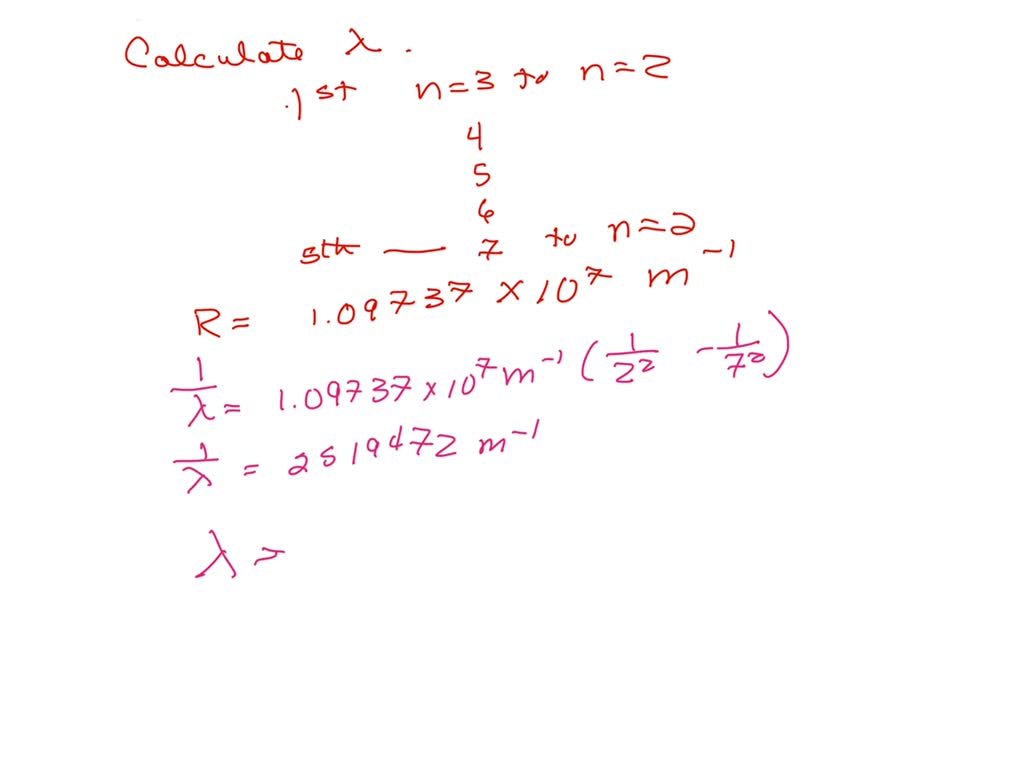 Calculate λ.
1st n=3 to n=2
4
5
6
5th — 7 to n=2
R = 1.09737 × 10⁷ m⁻¹
1/λ = 1.09737 × 10⁷ m⁻¹ (1/2² - 1/7²)
1/λ = 2519472 m⁻¹
λ =